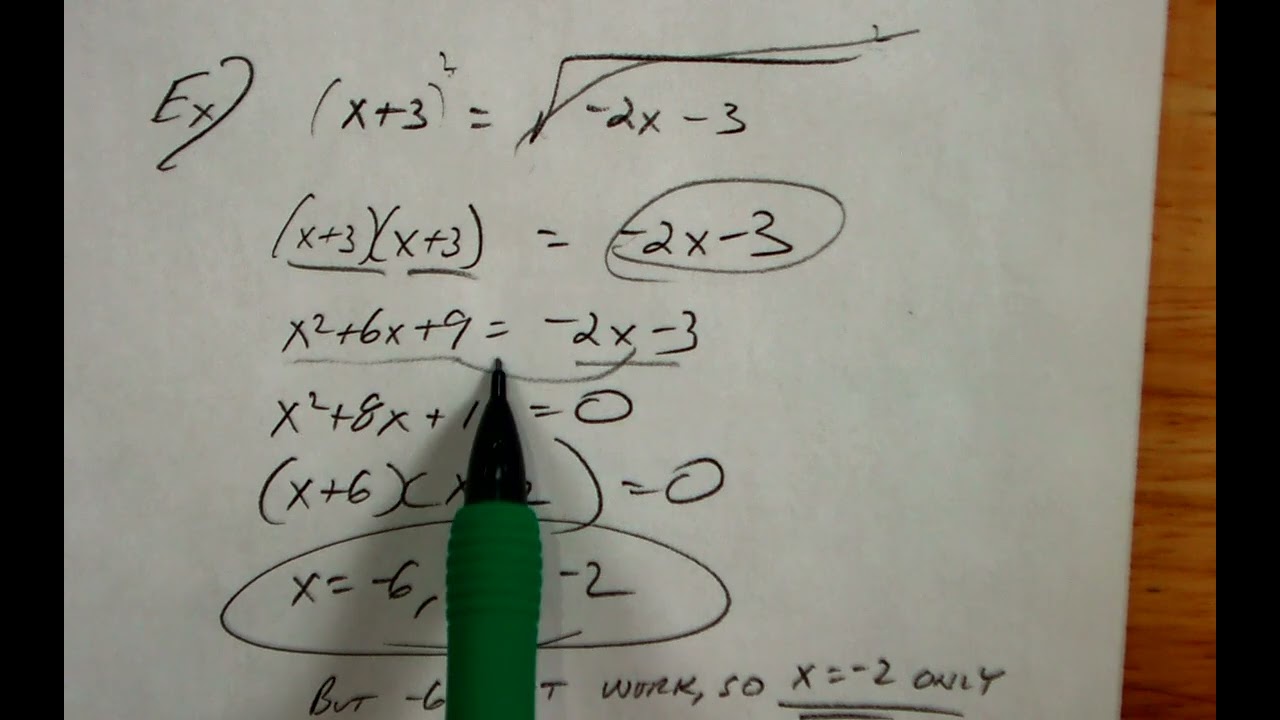 Ex) (x+3)² = √-2x-3 ²
(x+3)(x+3) = -2x-3
x²+6x+9 = -2x-3
x²+8x+1 =0
(x+6)( )=0
x=-6, -2
BUT -6 WORK, SO x=-2 ONLY